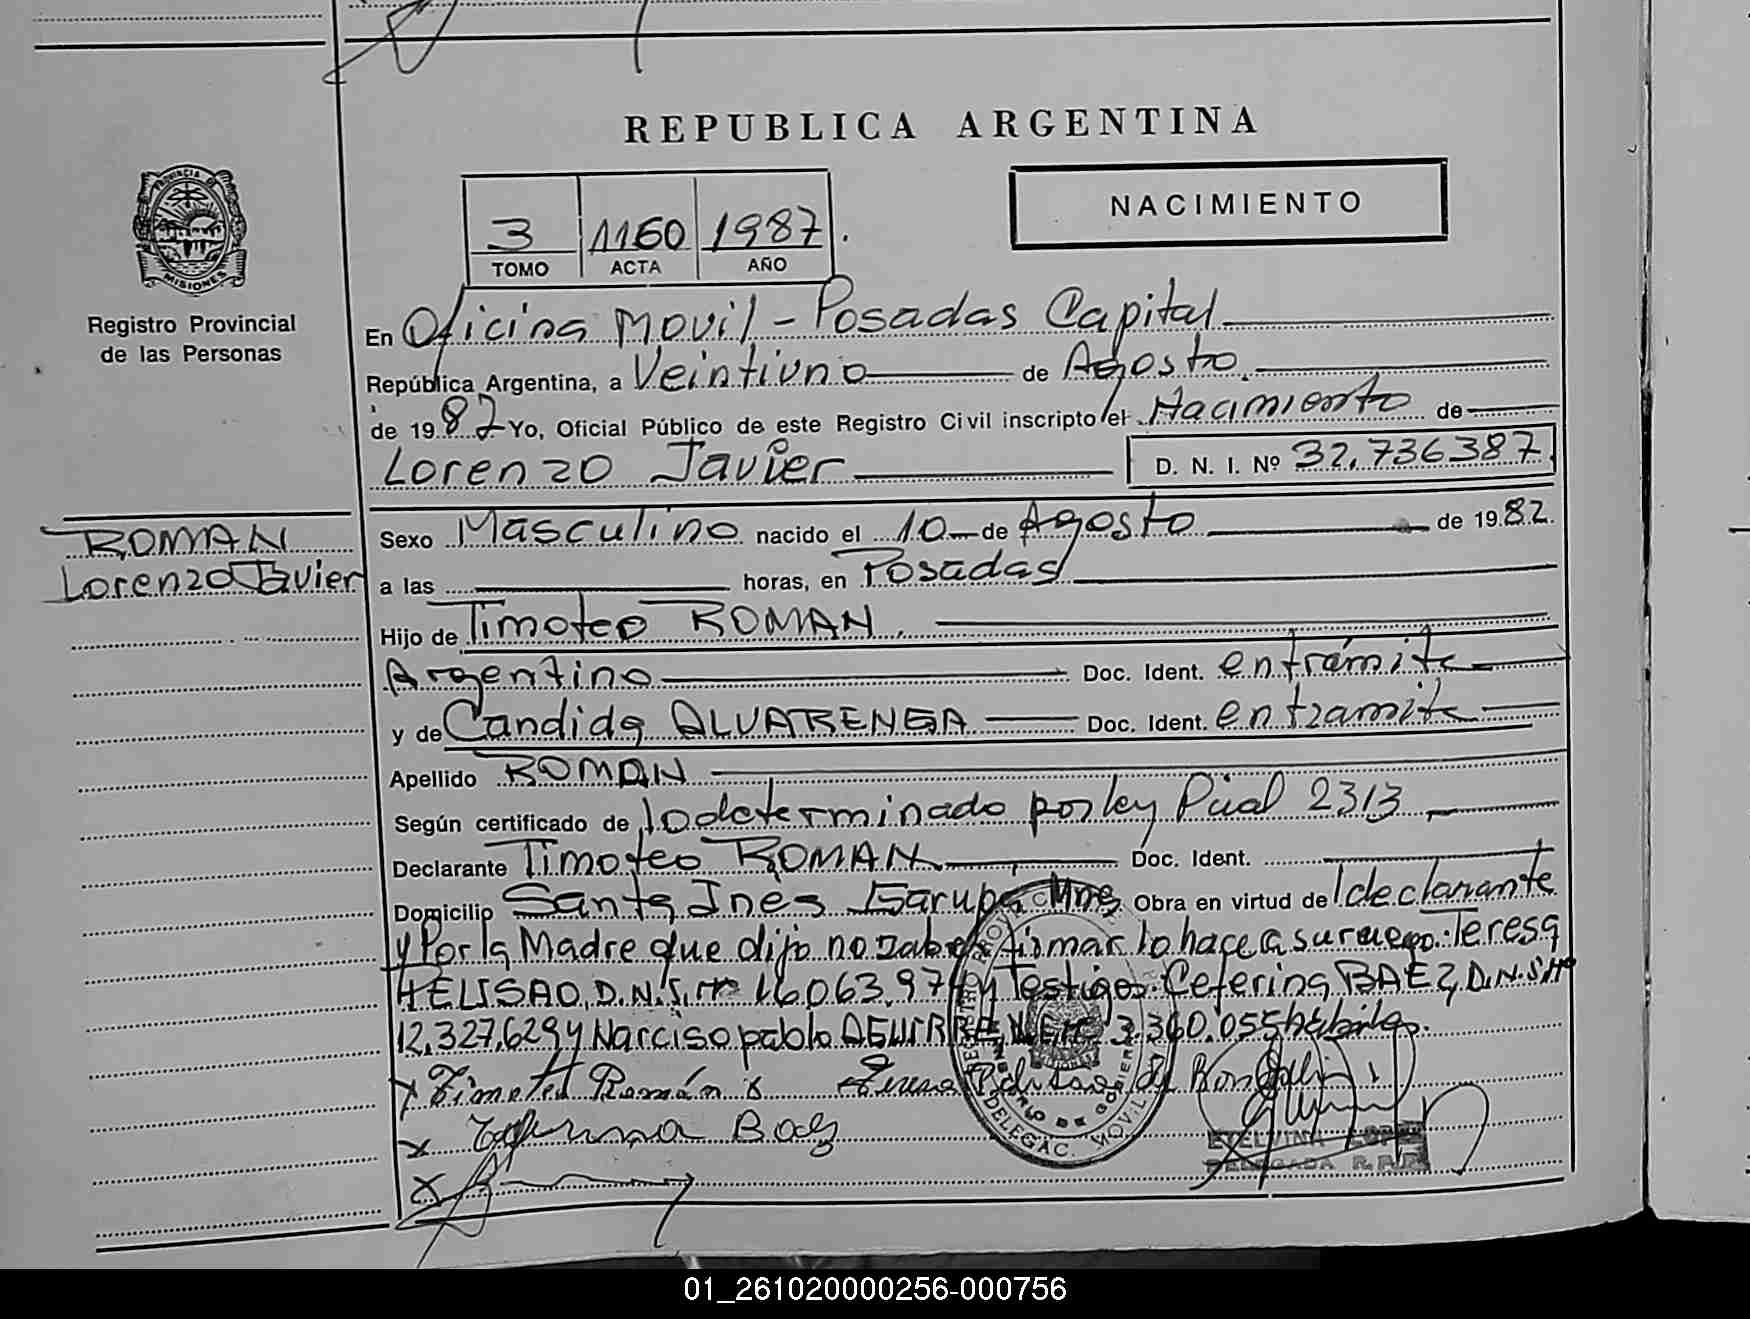 REPUBLICA ARGENTINA
PROVINCIA DE
MISIONES
Registro Provincial
de las Personas
NACIMIENTO
3 1160 1987
TOMO ACTA AÑO
En Oficina Movil - Posadas Capital
República Argentina, a Veintiuno de Agosto
de 1987 Yo, Oficial Público de este Registro Civil inscripto el Nacimiento de
Lorenzo Javier D. N. I. Nº 32.736387
ROMAN
Lorenzo Javier
Sexo Masculino nacido el 10 de Agosto de 1982.
a las horas, en Posadas
Hijo de Timoteo ROMAN
Argentino Doc. Ident. en trámite
y de Candida ALVARENGA Doc. Ident. en tramite
Apellido ROMAN
Según certificado de lo determinado por ley Pcial 2313
Declarante Timoteo ROMAN Doc. Ident.
Domicilio Santa Ines Garupá Mnes Obra en virtud de declarante
y Por la Madre que dijo no saber firmar lo hace a su ruego: Teresa
D.N.I. Nº 16.063.974 y Testigos: Ceferina BAEZ, D.N.I. Nº
12,327,629 y Narciso pablo AGUIRRE 3.360.055 habiles.
x Timoteo Román x Teresa
x Baez
x
DELEGAC. MOVIL
ETELVINA LOPEZ
DELEGADA R.P.P.
01_261020000256-000756